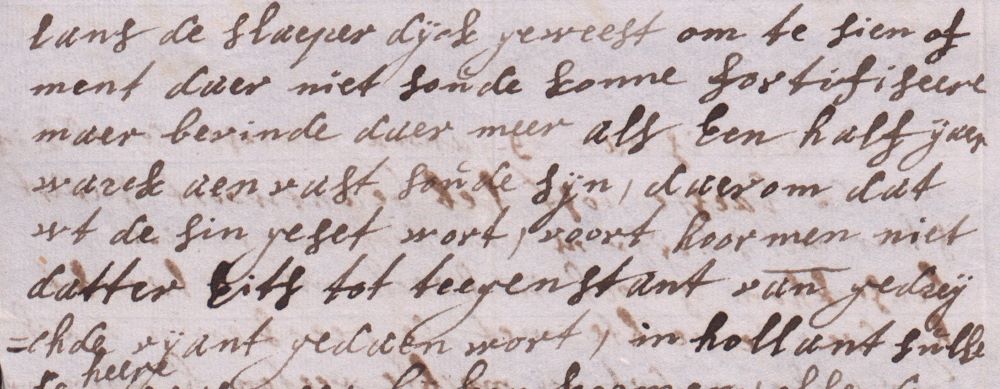 lans de slaeper dijck geweest om te sien of
ment daer niet soude konne fortifiseere
maer bevinde daer meer als Een half ijaer
warck aen vast soude sijn, daerom dat
wt de sin geset wort, voort hoormen niet
datter Eits tot teegenstant van gedrey
=chde vyant gedaen wort, in hollant sulle
heere